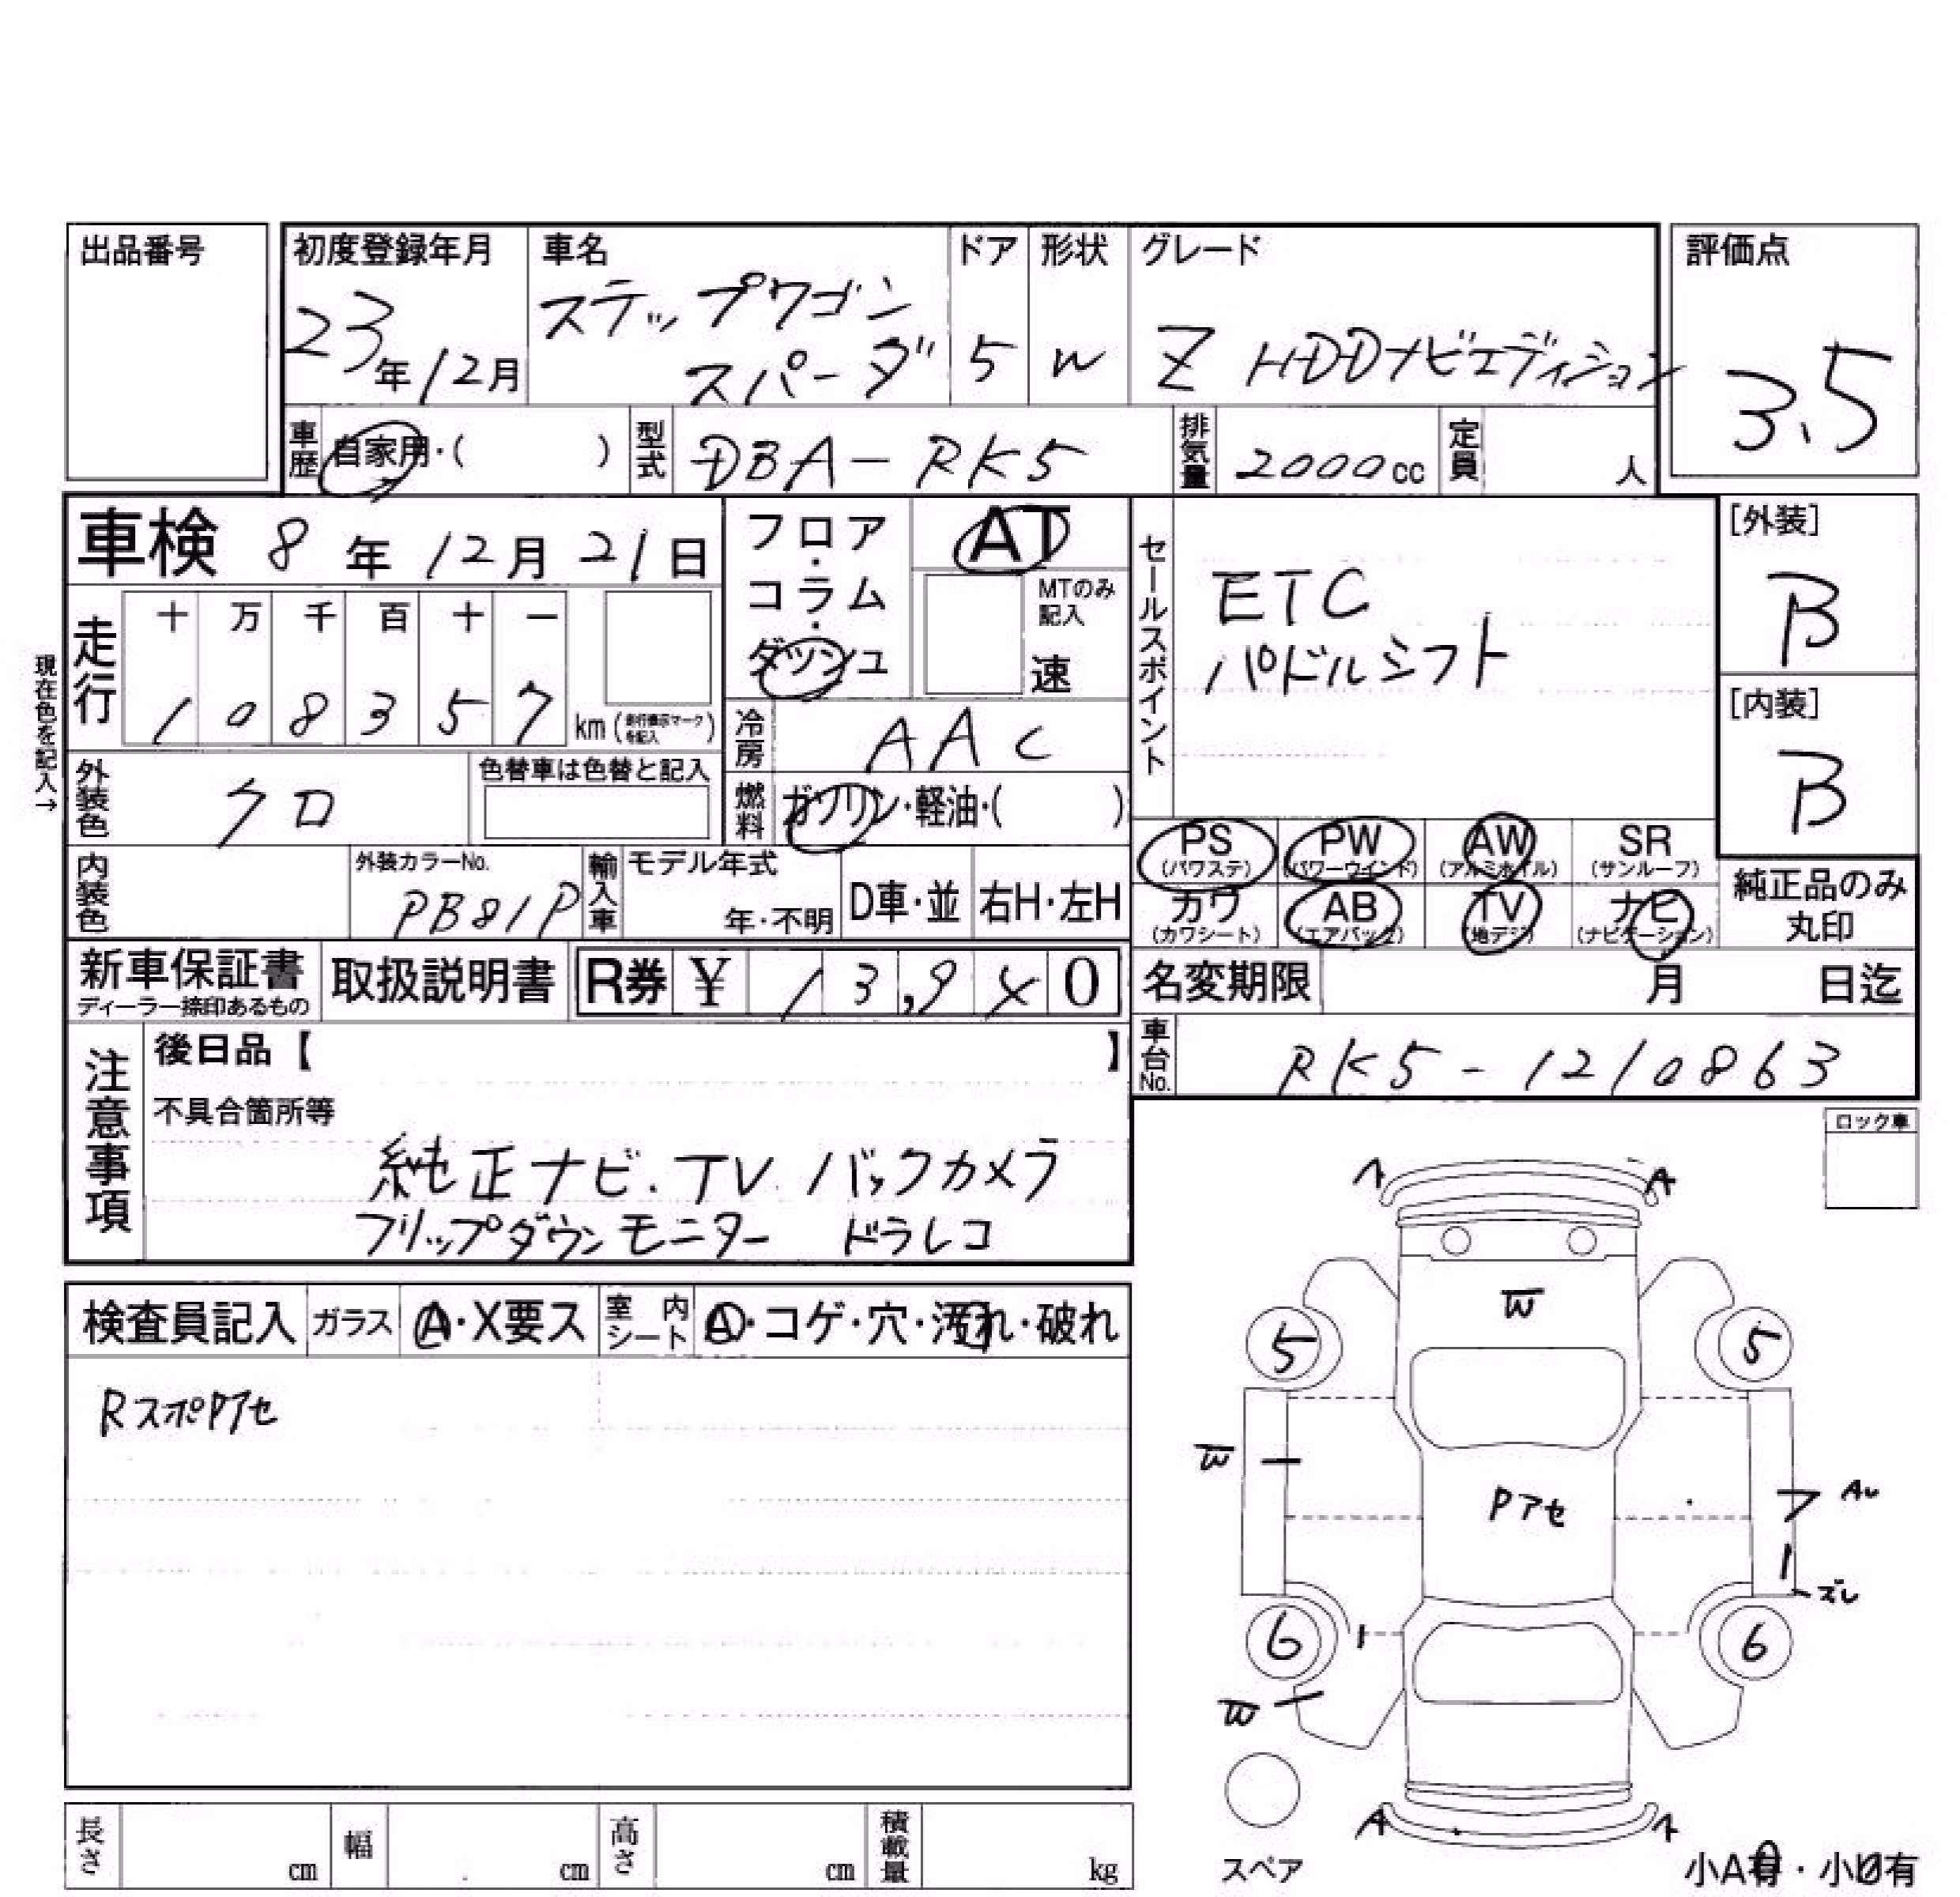 出品番号
初度登録年月 車名 ドア 形状 グレード 評価点
ステップワゴン
23年12月 スパーダ 5 W Z HDDナビエディション 3.5
車歴 自家用・( ) 型式 DBA-RK5 排気量 2000cc 定員 人
車検 8年12月21日 フロア・コラム・ダッシュ AT
MTのみ記入 速
セールスポイント
ETC
パドルシフト
[外装]
B
[内装]
B
現在色を記入→
走行 十 万 千 百 十 一
1 0 8 3 5 7 km (走行表示マークを記入)
冷房 AAC
外装色 クロ 色替車は色替と記入
燃料 ガソリン・軽油・( )
PS PW AW SR
(パワステ) (パワーウインド) (アルミホイル) (サンルーフ)
カワ AB TV ナビ
(カワシート) (エアバック) (地デジ) (ナビゲーション)
純正品のみ
丸印
内装色 外装カラーNo. PB81P 輸入車 モデル年式 年・不明 D車・並 右H・左H
新車保証書 取扱説明書 R券 ¥ 13,9 0
ディーラー捺印あるもの
名変期限 月 日迄
車台No. RK5-1210863
注意事項
後日品【 】
不具合箇所等
純正ナビ.TV バックカメラ
フリップダウンモニター ドラレコ
ロック車
検査員記入 ガラス A・X要ス 室内シート A・コゲ・穴・汚れ・破れ
RスポPアセ
A A
W
5 5
W
Pアセ
ズレ
6 6
W
A A
スペア
小A有・小U有
長さ cm 幅 cm 高さ cm 積載量 kg